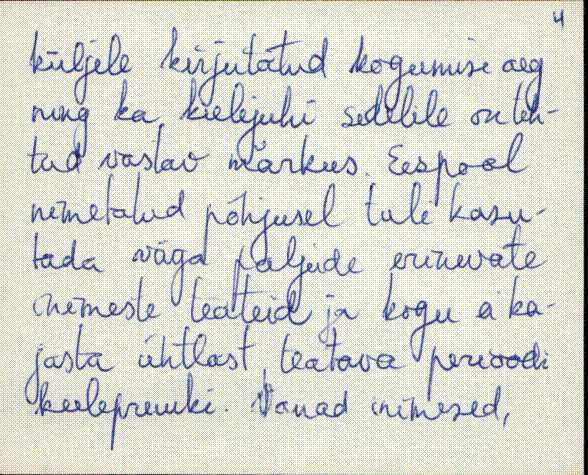 4
küljele kirjutatud kogumise aeg
ning ka keelejuhi sedelile on teh-
tud vastav märkus. Eespool
nimetatud põhjusel tuli kasu-
tada väga paljude erinevate
inimeste teateid ja kogu ei ka-
jasta ühtlast, teatava perioodi
keelepruuki. Vanad inimesed,